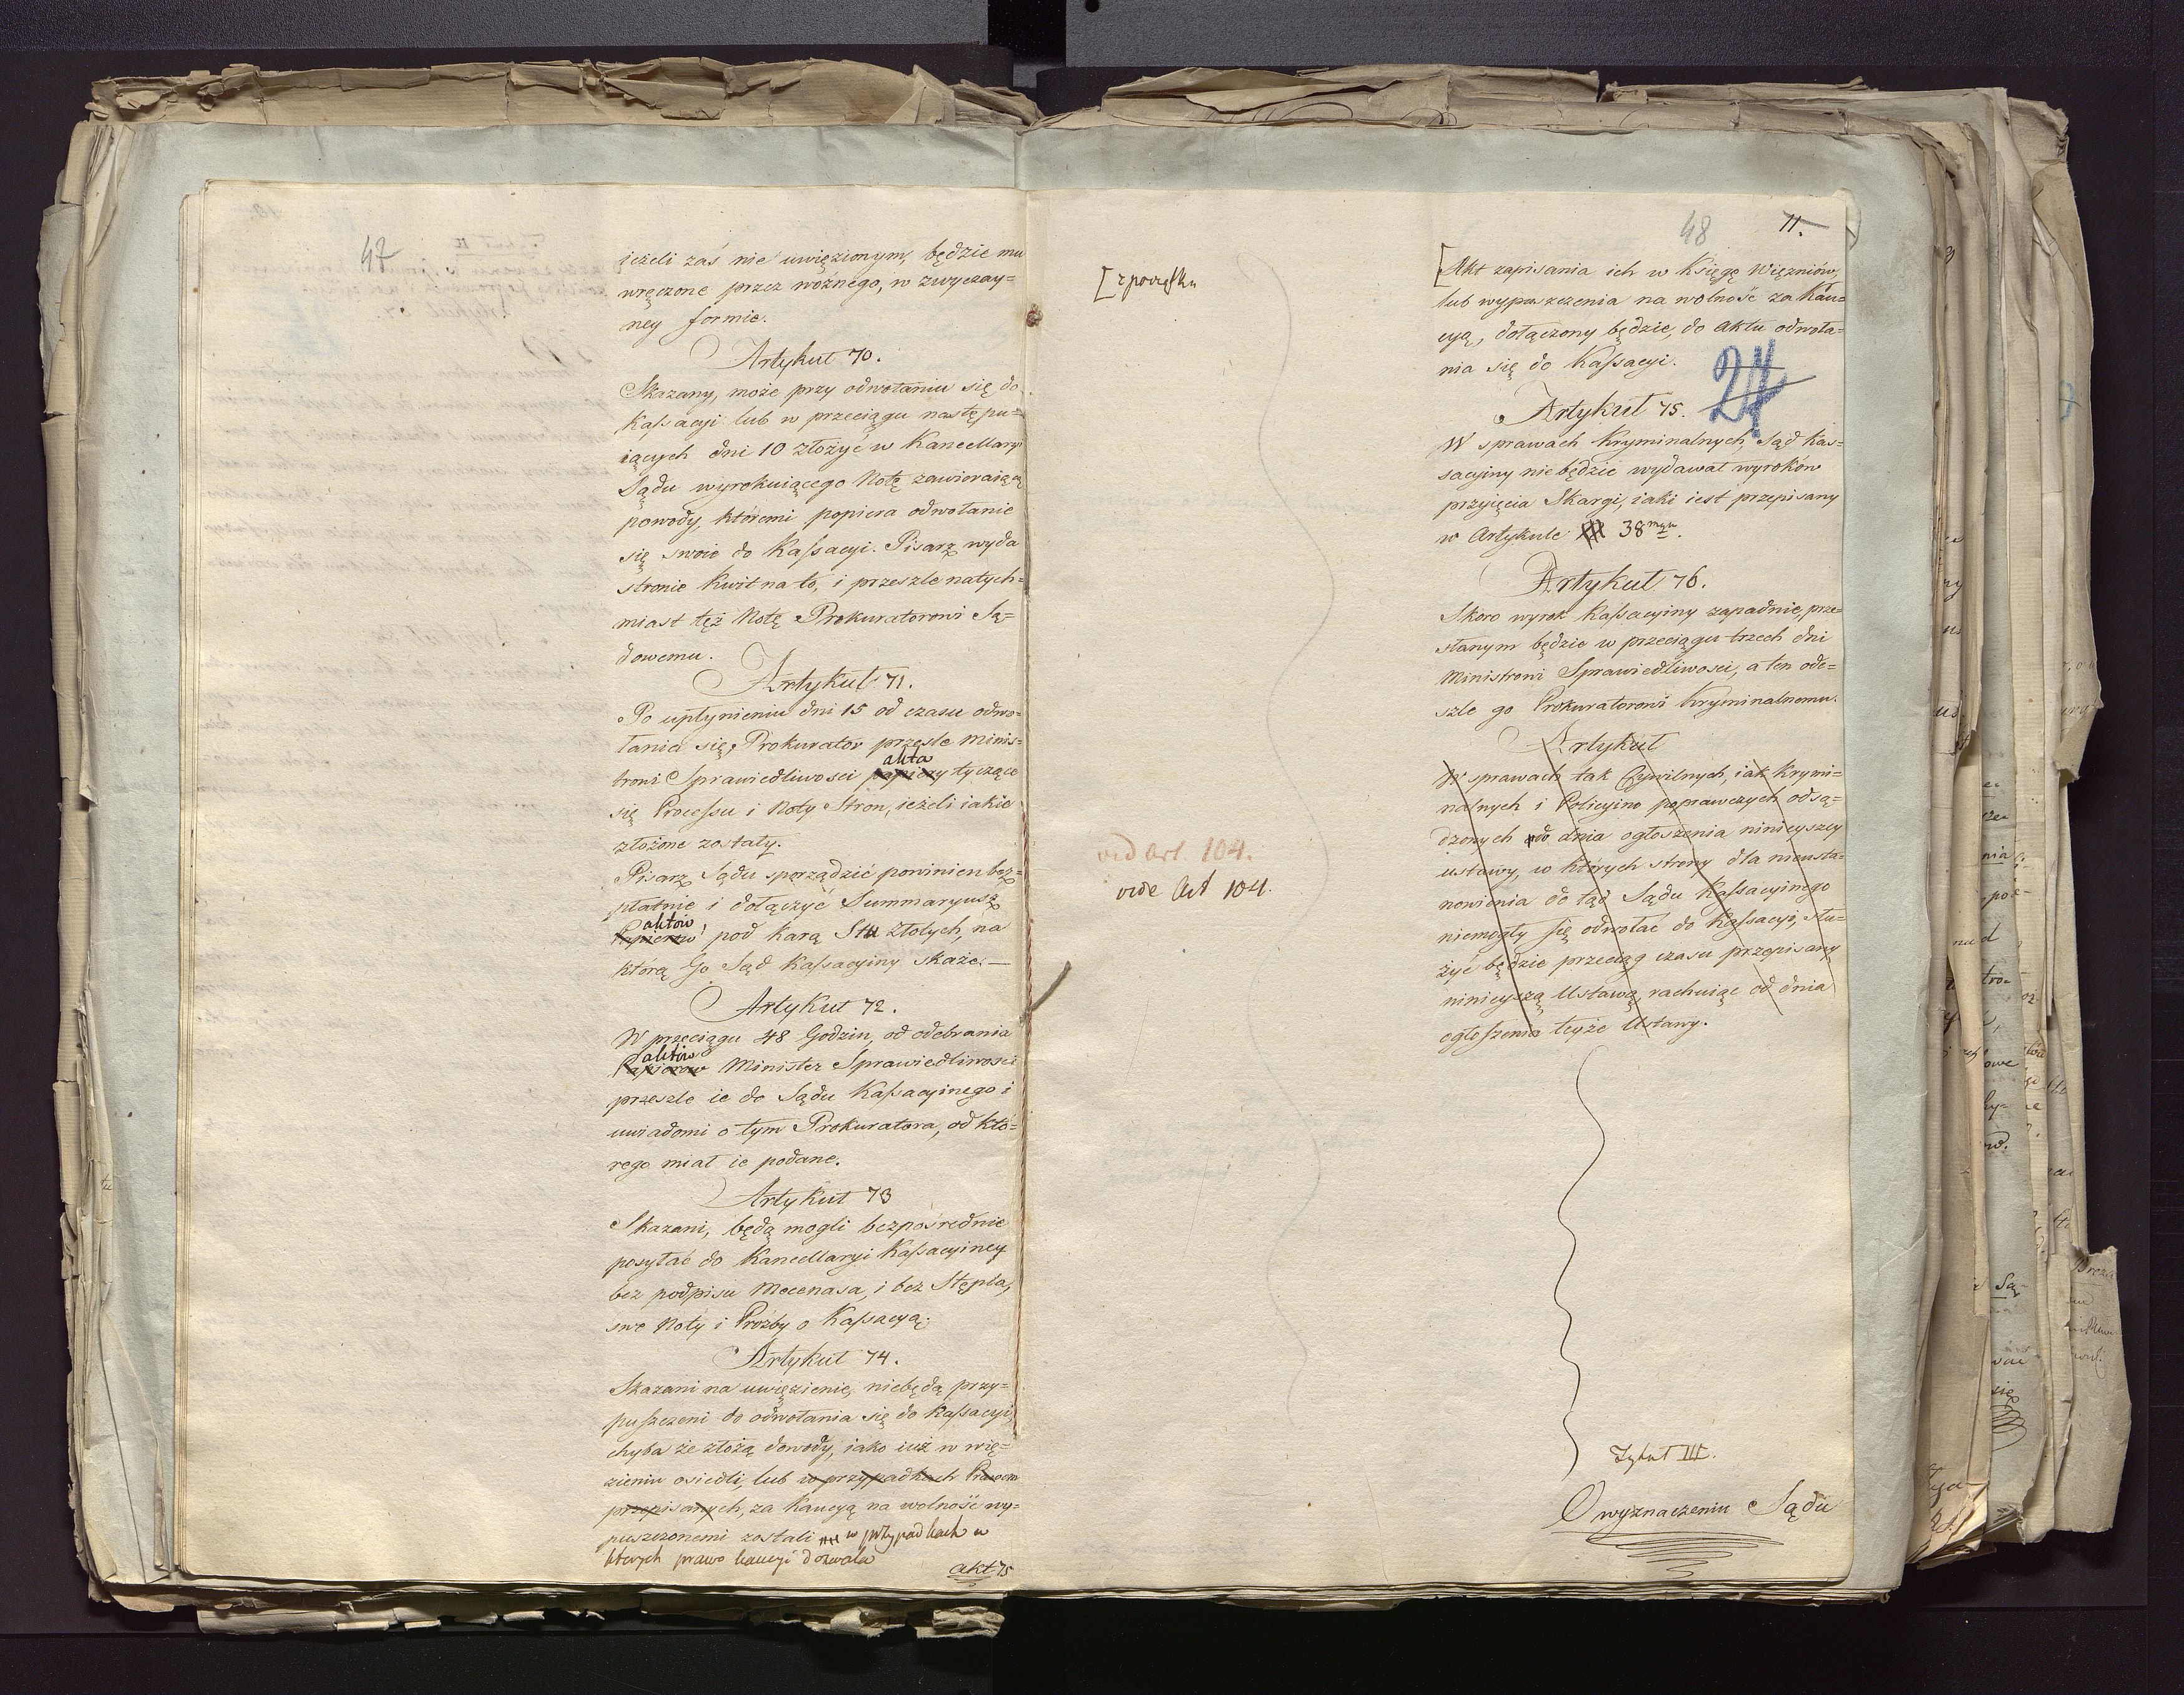 47
ieżeli zaś nie uwięzionym, będzie mu
wręczone przez woźnego, w zwyczay=
ney formie.
Artykuł 70.
Skazany, może przy odwołaniu się do
Kassacyi lub w przeciągu następu=
iących dni 10 złożyć w Kancellaryi
Sądu wyrokuiącego Notę zawieraiącą
powody, któremi popiera odwołanie
się swoie do Kassacyi. Pisarz wyda
stronie kwit na to, i przeszle natych=
miast też Notę Prokuratorowi Są=
dowemu.
Artykuł 71.
Po upłynieniu dni 15 od czasu odwo=
łania się, Prokurator przesle Minis=
akta
trowi Sprawiedliwosci papiery tyczące
się Processu i Noty Stron, ieżeli iakie
złożone zostały.
Pisarz Sądu sporządzić powinien bez=
płatnie i dołączyć Summaryusz
aktów
Papierów, pod karą Stu złotych, na
którą Go Sąd Kassacyiny skaże. —
Artykuł 72.
W przeciągu 48 Godzin, od odebrania
aktów
Papierow Minister Sprawiedliwosci
przeszle ie do Sądu Kassacyinego i
uwiadomi o tym Prokuratora, od któ=
rego miał ie podane.
Artykuł 73
Skazani, będą mogli bezpośrednie
posyłać do Kancellaryi Kassacyiney
bez podpisu Mecenasa, i bez Stępla,
swe Noty i Prozby o Kassacyą.
Artykuł 74.
Skazani na uwięzienie, niebędą przy=
puszczeni do odwołania się do Kassacyi,
chyba że złożą dowody, iako iuż w wię=
zieniu osiedli, lub w przypadkach Prawem
przepisanych, za Kaucyą na wolność wy=
puszczonemi zostali w przypadkach w
których prawo kaucyi dozwala
akt 75
48
11.
[z początku
[Akt zapisania ich w Księgę Więzniów,
lub wypuszczenia na wolność za Kau=
cyą, dołączony będzie, do Aktu odwoła=
nia się do Kassacyi.
Artykuł 75.
24
W sprawach Kryminalnych, Sąd Kas=
sacyiny niebędzie wydawał wyroków
przyięcia Skargi, iaki iest przepisany
w Artykule 38mym.
Artykuł 76.
Skoro wyrok Kassacyiny zapadnie, prze=
słanym będzie w przeciągu trzech dni
Ministrowi Sprawiedliwosci, a ten ode=
szle go Prokuratorowi Kryminalnemu.
Artykuł
W sprawach tak Cywilnych, iak Krymi=
nalnych i Policyino poprawczych odsą=
dzonych do dnia ogłoszenia ninieyszey
ustawy, w których strony dla nieusta=
nowienia do tąd Sądu Kassacyinego
niemogły się odwołać do Kassacyi, słu=
żyć będzie przeciąg czasu przepisany
ninieyszą Ustawą, rachuiąc od dnia
ogłoszenia teyże Ustawy.
vid Art. 104.
vide Art 104.
Tytuł III.
O wyznaczeniu Sądu